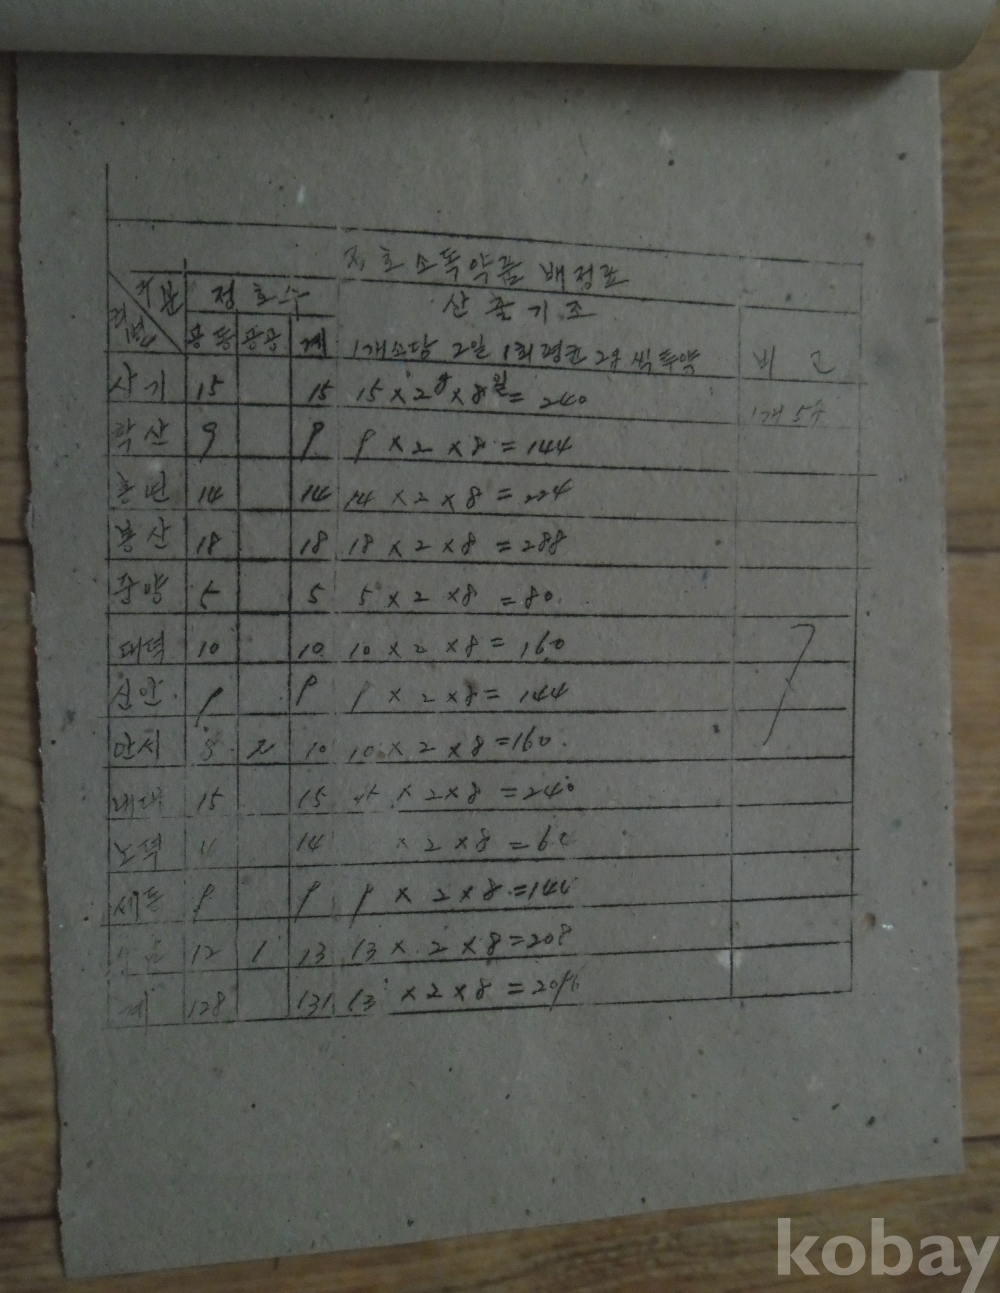 소독약품 배정표
구분
정호수
산출기초
비고
공동 공공 계 1개소당 2일 1회 평균 2g씩 투약
사기 15 15 15 × 2g × 8일 = 240
학산 9 9 9 × 2 × 8 = 144
14 14 14 × 2 × 8 = 224
용산 18 18 18 × 2 × 8 = 288
중양 5 5 5 × 2 × 8 = 80.
대덕 10 10 10 × 2 × 8 = 160
신안. 9 9 9 × 2 × 8 = 144
안시 8 2 10 10 × 2 × 8 = 160.
15 15 × 2 × 8 = 240
노덕 14 × 2 × 8 = 64
세동 9 9 9 × 2 × 8 = 144
12 1 13 13 × 2 × 8 = 208
계 128 131 × 2 × 8 = 2096
kobay